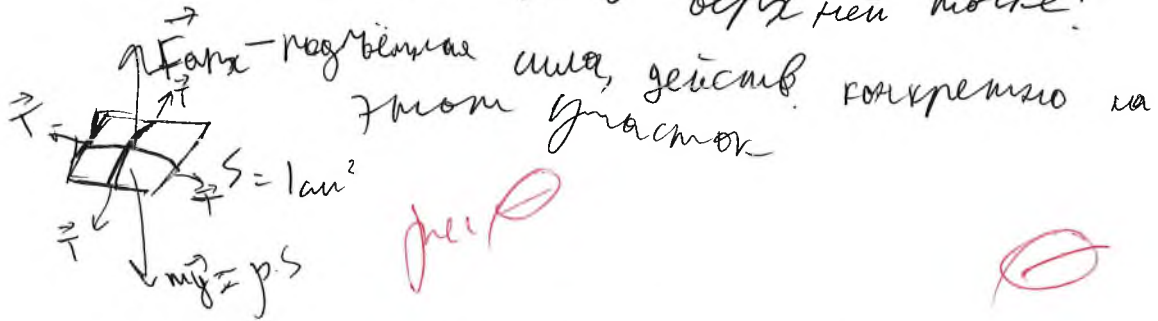 верхней точке:
F⃗арх – подъёмная сила, действ. конкретно на
этот участок
T⃗
T⃗
S = 1 см²
T⃗
T⃗
mg⃗ = ρ·S